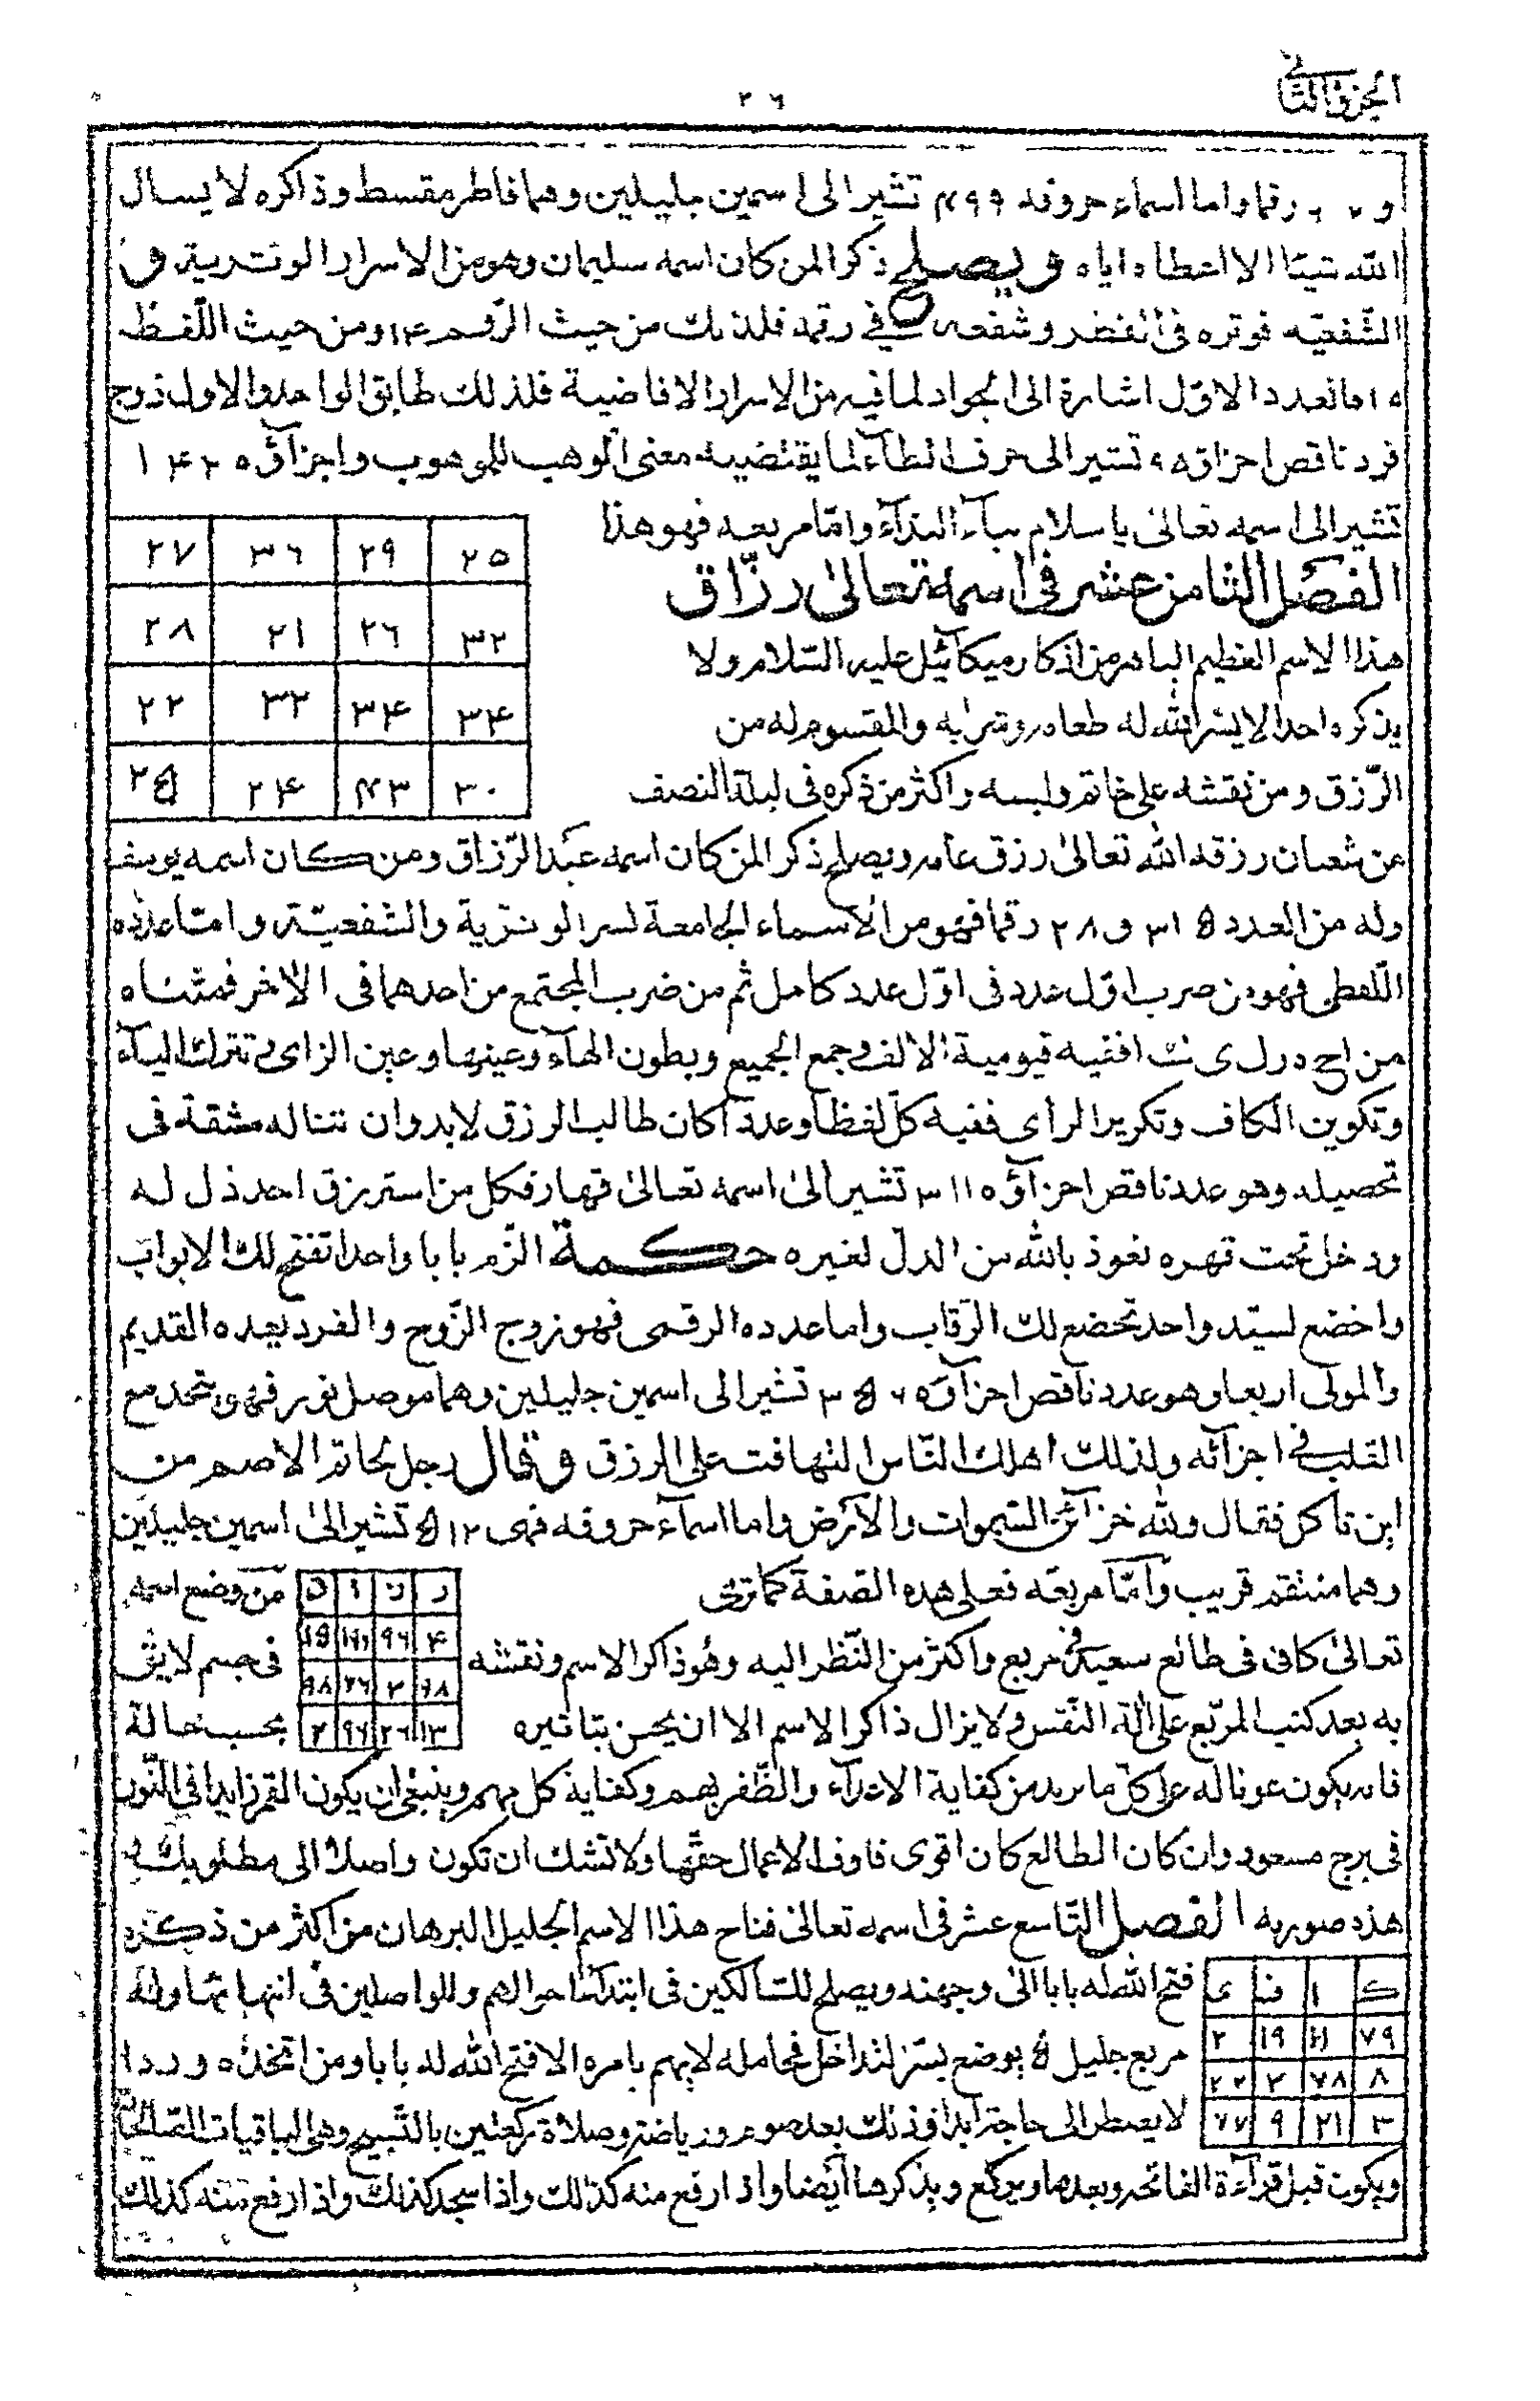 الجزء الثاني
٢٦
و رقما واما اسماء حروفه ٤٩٩ تشير الى اسمين جليلين وهما فاطر مقسط وذاكره لا يسال
الله شيئا الا اعطاه اياه ويصلح ذكرا لمن كان اسمه سليمان وهو من الاسرار الوترية و
الشفعيه فوتره في اللفظ وشفعه في رقمه فلذلك من حيث الرقم ١٤ ومن حيث اللفظ
١٥ فالعدد الاول اشارة الى الجواد لما فيه من الاسرار الافاضية فلذلك طابق الواحد والاول زوج
فرد ناقص اجزاؤه تشير الى حرف الطآء لما يقتضيه معنى الوهب للموهوب واجزآؤه
تشير الى اسمه تعالى يا سلام بيآء الندآء واما مربعه فهو هذا
٢٥ ٢٩ ٣٦ ٢٧
٣٢ ٢٦ ٢١ ٢٨
٣٤ ٣٤ ٣٣ ٢٢
٣٠ ٢٤
الفصل الثامن عشر في اسمه تعالى رزّاق
هذا الاسم العظيم الباهر من اذكار ميكآئيل عليه السلام ولا
يذكره احد الا يسر الله له طعامه وشرابه والمقسوم له من
الرزق ومن نقشه على خاتم ولبسه واكثر من ذكره في ليلة النصف
من شعبان رزقه الله تعالى رزق عامه ويصلح ذكرا لمن كان اسمه عبد الرزاق ومن كان اسمه يوسف
وله من العدد ٣١٥ و ٢٠٨ رقما فهو من الاسماء الجامعة لسر الوترية والشفعيته واما عدده
اللفظي فهو من ضرب اول عدد في اول عدد كامل ثم من ضرب المجتمع من احدهما في الاخر فمثناه
من اح درل ى ففيه قيومية الالف وجمع الجميع وبطون الهآء وعينها وعين الزاى وتترك اليآء
وتكوين الكاف وتكرير الرآى ففيه كل لفظا وعددا كان طالب الرزق لابد وان تناله مشقة في
تحصيله وهو عدد ناقص اجزآؤه ٣١١ تشير الى اسمه تعالى قهار فكل من استرزق احد ذل له
ودخل تحت قهره نعوذ بالله من الذل لغيره حكمة الزم بابا واحدا تفتح لك الابواب
واخضع لسيد واحد تخضع لك الرقاب واما عدده الرقمى فهو زوج الزوج والفرد بعده القديم
والمولى اربعا وهو عدد ناقص اجزآؤه تشير الى اسمين جليلين وهما موصل نور فهى تتحد مع
القلب في اجزائه ولذلك اهلك الناس التهافت على الرزق وقال رجل لحاتم الاصم من
اين تاكل فقال ولله خزآئن السموات والارض واما اسمآء حروفه فهى ٥١٢ تشير الى اسمين جليلين
وهما منتقم قريب وامّا مربعه فعلى هذه الصفة كما ترى
ر ز ا ق
٤ ٩٦
٢
من وضع اسمه
تعالى كافى في طالع سعيد في مربع واكثر من النظر اليه وهو ذاكر الاسم ونقشه في جسم لايق
به بعد كتب المربع على الة النفس ولا يزال ذاكر الاسم الا ان يحسن بتاثيره بحسب حالة
فانه يكون عونا له على كل ما يريد من كفاية الاعدآء والظفر بهم وكفاية كل مهم وينبغى ان يكون القمر زايدا في النون
في برج مسعود وان كان الطالع كان اقوى فاوف الاعمال حقها ولا تشك ان تكون واصلا الى مطلوبك و
هذه صورته الفصل التاسع عشر في اسمه تعالى فتاح هذا الاسم الجليل البرهان من اكثر من ذكره
ك ا ف ى
٧٩ ١٩ ٢
٨ ٧٨ ٢ ٢٢
٣ ٢١ ٩ ٧٧
فتح الله له بابا الى وجهته ويصلح للسالكين في ابتدآء احوالهم وللواصلين في انتهائها وله
مربع جليل يوضع بسر التداخل فحامله لا يهم بامره الا فتح الله له بابا ومن اتخذه وردا
لا يضطر الى حاجة ابدا وذلك بعد صوم ورياضة وصلاة ركعتين بالتسبيح وهى الباقيات الصالحات
ويكون قبل قرآءة الفاتحه وبعدها ويركع ويذكرها ايضا واذا رفع منه كذلك واذا سجد كذلك واذا رفع منه كذلك